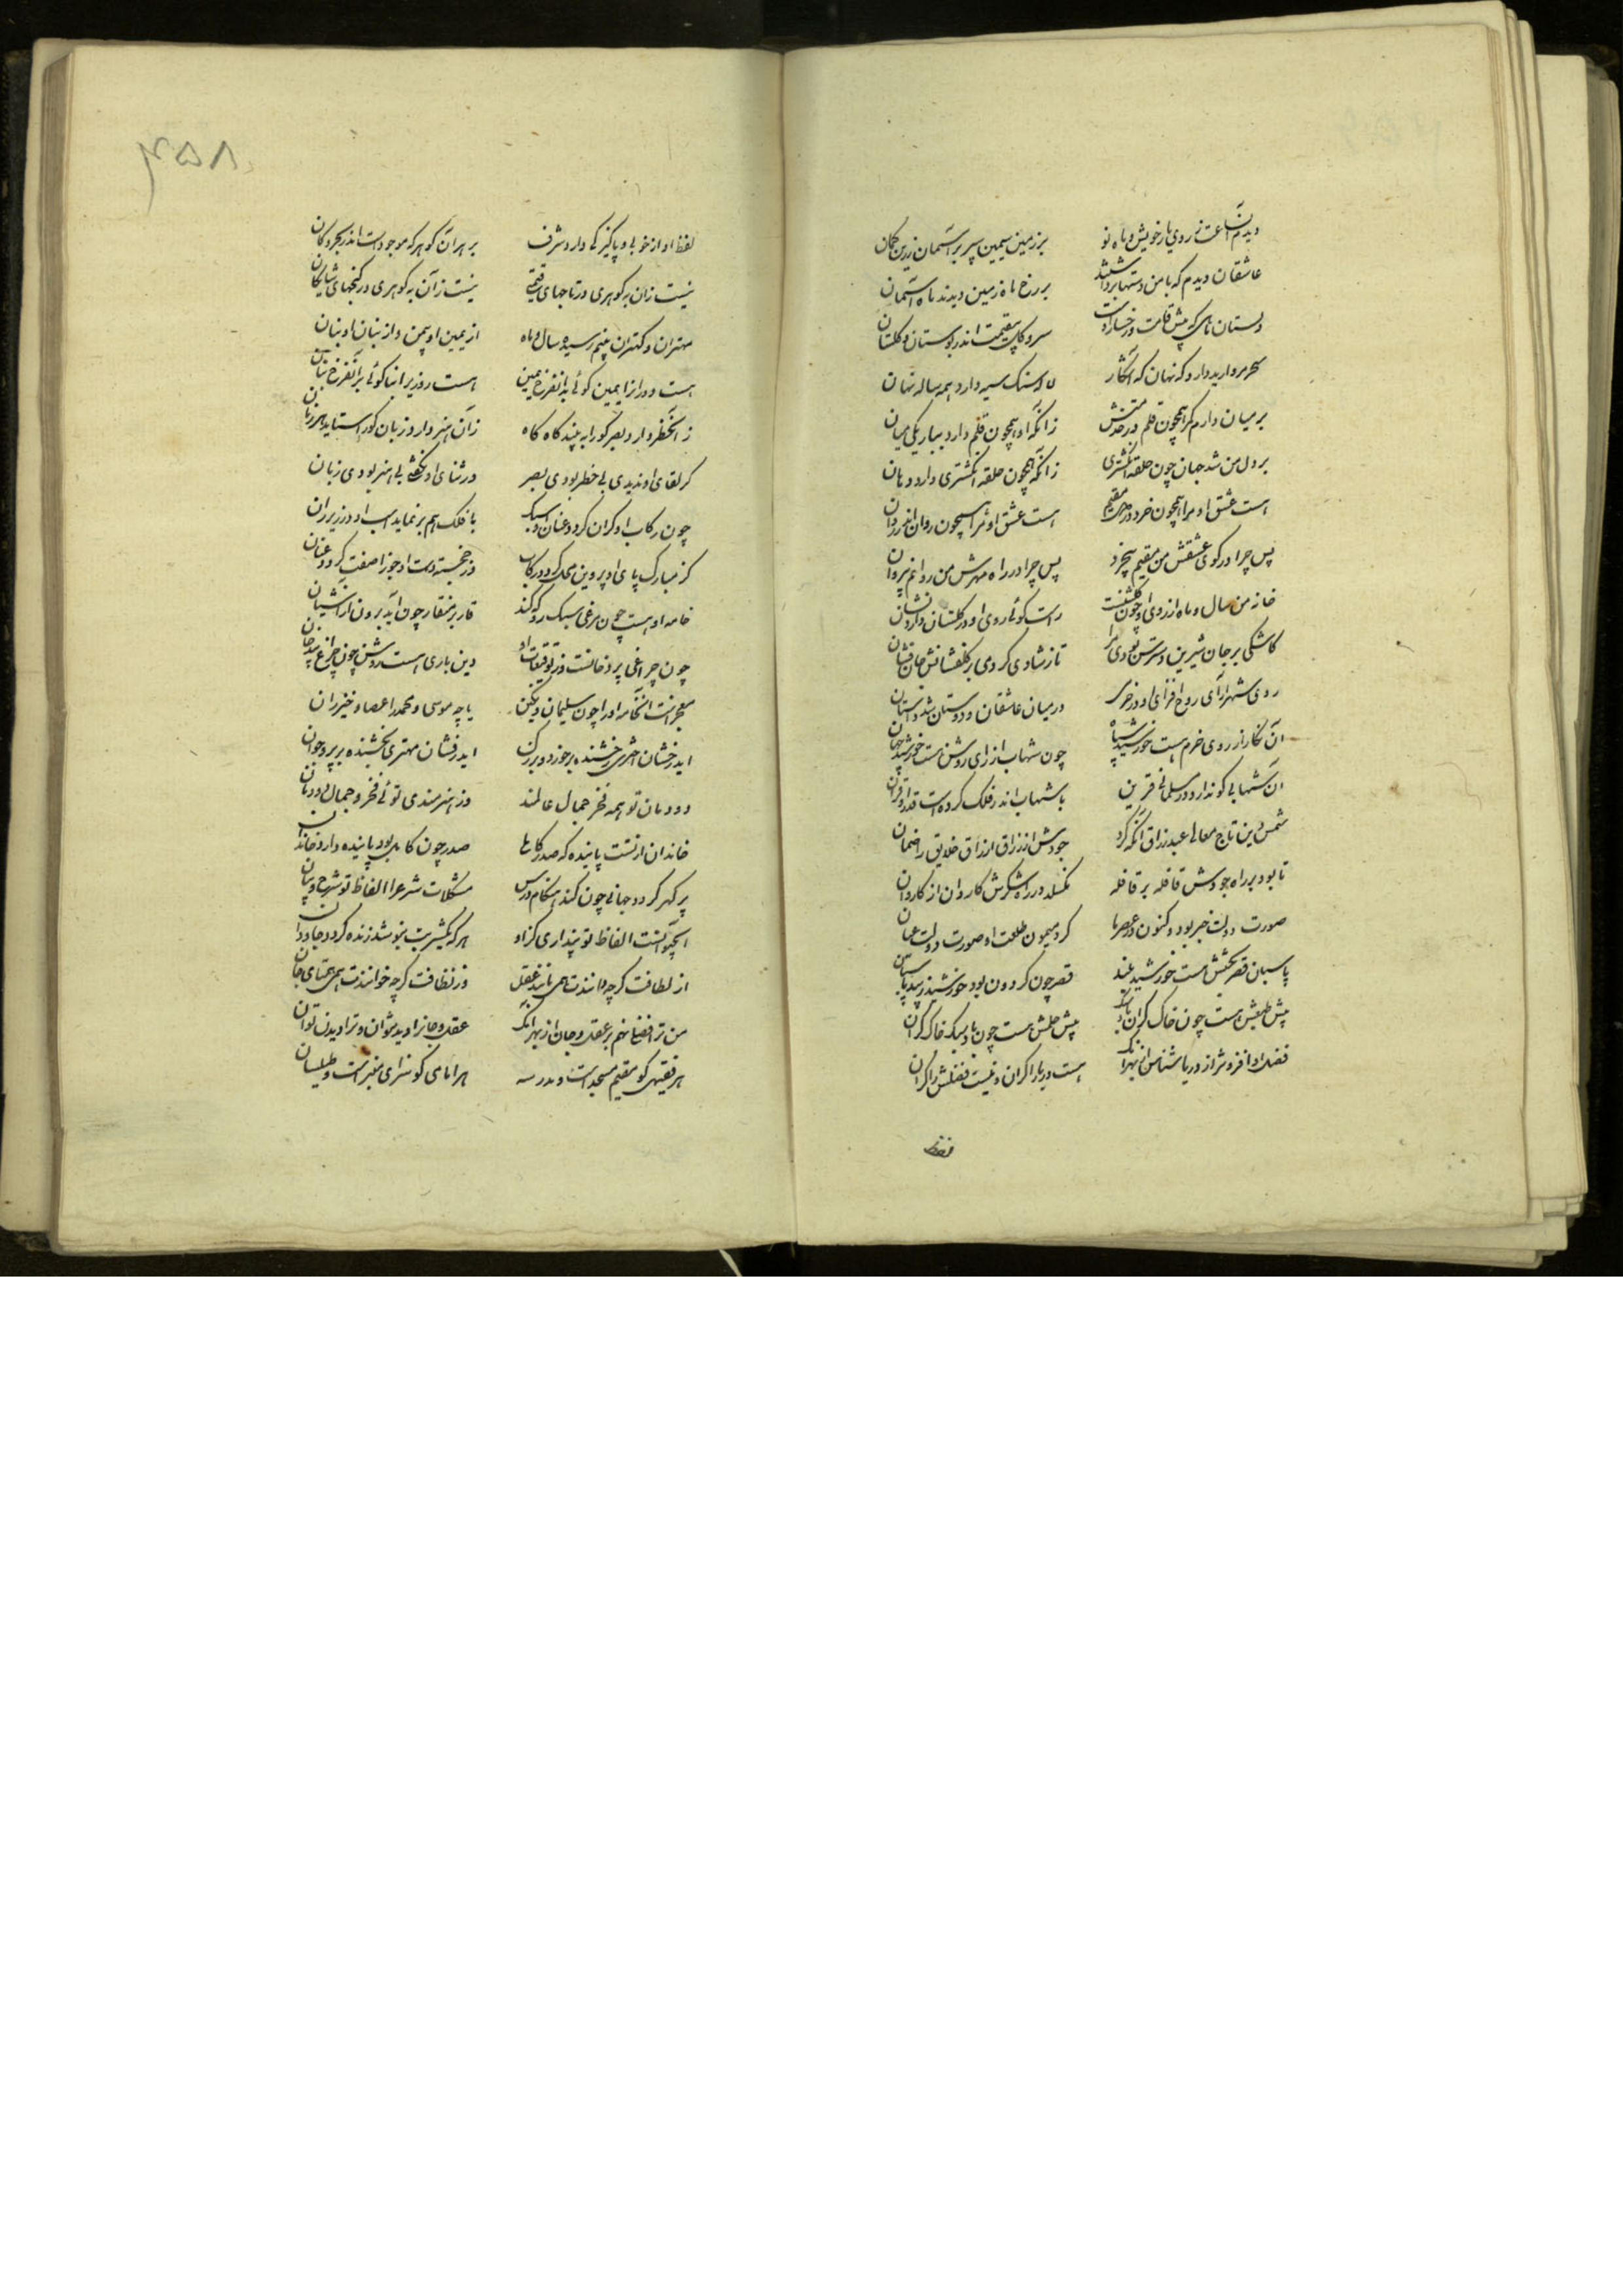 دیدم آنساعت ز روی یار خویش و ماه نو بر زمین سیمین سپر بر آسمان زرین کمان
عاشقان دیدم که با من دستها برداشتند بر رخ ماه زمین دیدند ماه آسمان
دلستان ماهی که پیش قامت و رخسار اوست سرو کل بیقیمت اندر بوستان و کلستان
مروارید دارد که نهان که آشکار لاله سنک سیه دارد همه ساله نهان
بر میان دارم کمر همچون قلم در خدمتش زانکه او همچون قلم دارد بباریکی میان
بر دل من شد جهان چون حلقه انکشتری زانکه همچون حلقه انکشتری دارد دهان
هست عشق او مرا همچون خرد در سر مقیم هست عشق او مرا همچون روان اندر روان
پس چرا در کوی عشقش من مقیم بیخرد پس چرا در راه مهرش من روانم بیروان
خانه من سال و ماه از روی او چون کلشنست راست کوئی روی او در کلستان دارد نشان
کاشکی بر جان شیرین دسترس بودی مرا تا ز شادی کردمی بر کلفشانش جان فشان
روی شهر آرای روح افزای او در خرمی در میان عاشقان و دوستان شد داستان
آن نکار از روی خرم هست خورشید سپاه چون شهاب از رای روشن هست خورشید جهان
آن شهابی کو ندارد در مسلمانی قرین با شهاب اندر فلک کرده است قدر او قران
شمس دین تاج معالی عبد رزاق آنکه کرد جودش از رزاق ارزاق خلایق را ضمان
تا بود بر راه جودش قافله بر قافله نکسلد در راه شکرش کاروان از کاروان
صورت دولت خبر بود و کنون در عصر ما کرد میمون طلعت او صورت دولت عیان
پاسبان قصر بختش هست خورشید بلند قصر چون کردون بود خورشید زیبد پاسبان
پیش طبعش هست چون خاک کران باد سبک پیش حلمش هست چون باد سبک خاک کران
فضل او افزونتر از دریا شناس از بهر آنک هست دریا را کران و نیست فضلش را کران
لفظ
۴۵۸
لفظ او از خوبی و پاکیزکی دارد شرف بر هر آن کوهر که موجود است اندر بحر و کان
نیست زان به کوهری در تاجهای قیمتی نیست زآن به کوهری در کنجهای شایکان
مهتران و کهتران بینم رسیده سال و ماه از یمین او بیمن و از بنان او بنان
هست دور از ایمین کوئی بدان فرخ یمین هست روزی را بنا کوئی بر آن فرخ بنان
زان خطر دارد بصر کو را به بیند کاه کاه زآن هنر دارد زبان کو را ستاید هر زمان
کر لقای او ندیدی بی خطر بودی بصر ور ثنای او نکفتی بی هنر بودی زبان
چون رکاب او کران کردد عنان او سبک با فلک هم بر نماید اسب او در زیر ران
کز مبارک پای او پروین محل کردد رکاب وز خجسته دست او جوزا صفت کردد عنان
خامه او هست چون مرغی سبک رو کند قار بر منقار چون آید برون از آشیان
چون چراغی پر دخانست وز توقیعات او دین باری هست روشن چون چراغ بیدخان
معجز است آن خامه او را چون سلیمان را نکین یا چه موسی و محمد را عصا و خیزران
ای درخشان اختری رخشنده بر خورد و بزرک ای درفشان مهتری بخشنده بر پیر و جوان
دودمان تو همه فخر جمال عالمند وز هنرمندی توئی فخر و جمال دودمان
خاندان از تست پاینده که صدر کاملی صدر چون کامل بود پاینده دارد خاندان
پر کهر کردد جهانی چون کند هنکام درس مشکلات شرع را الفاظ تو شرح و بیان
آب حیوانست الفاظ تو پنداری کز او هر که یکشربت بنوشد زنده کردد جاودان
از لطافت کرچه دانندت همی مانند عقل وز نظافت کرچه خوانندت همی همتای جان
من ترا فضل نهم بر عقل و جان از بهر آنک عقل و جانرا دید نتوان و ترا دیدن توان
هر فقیهی کو مقیم مسجد است و مدرسه هر امامی کو سزای منبر است و طیلسان